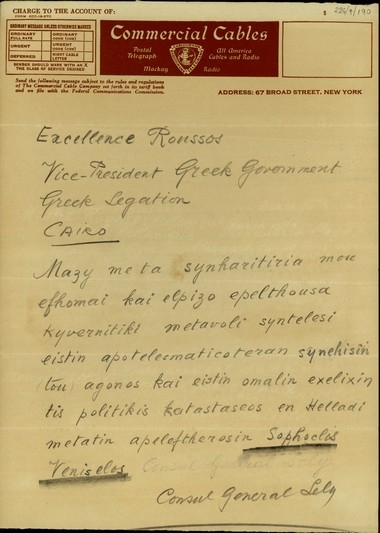 CHARGE TO THE ACCOUNT OF:
ORDINARY MESSAGE UNLESS OTHERWISE MARKED
ORDINARY FULL RATE
ORDINARY CODE (CDE)
URGENT
URGENT CODE (CDE)
DEFERRED
NIGHT CABLE LETTER
SENDER SHOULD MARK WITH AN X THE CLASS OF SERVICE DESIRED
Commercial Cables
Postal Telegraph
All America Cables and Radio
Mackay Radio
Send the following message subject to the rules and regulations of The Commercial Cable Company set forth in its tariff book and on file with the Federal Communications Commission.
ADDRESS: 67 BROAD STREET, NEW YORK
Excellence Roussos
Vice-President Greek Govornment
Greek Legation
CAIRO
Mazy meta synharitiria mou
efhomai kai elpizo epelthousa
kyvernitiki metavoli syntelesi
eistin apotelesmaticoteran synehisin
tou agonos kai eistin omalin exelixin
tis politikis katastaseos en Helladi
metatin apeleftherosin Sophoclis
Veniselos
Consul General Lely